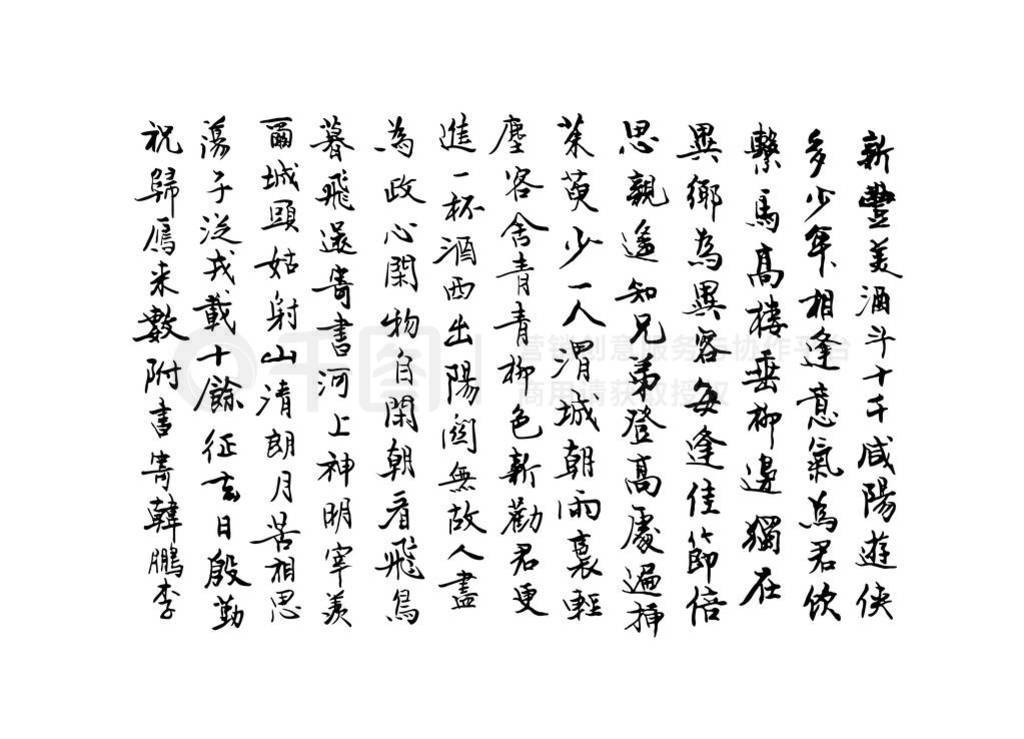 新豐美酒斗十千咸陽遊俠
多少年相逢意氣為君飲
繫馬高樓垂柳邊獨在
異鄉為異客每逢佳節倍
思親遙知兄弟登高處遍插
茱萸少一人渭城朝雨裛輕
塵客舍青青柳色新勸君更
進一杯酒西出陽関無故人盡
為政心閑物自閑朝看飛鳥
暮飛還寄書河上神明宰羨
爾城頭姑射山清朗月苦相思
蕩子泛戎載十餘征去日殷勤
祝歸鴈来數附書寄韓鵬李
千图
营销创意服务与协作平台
商用请获取授权